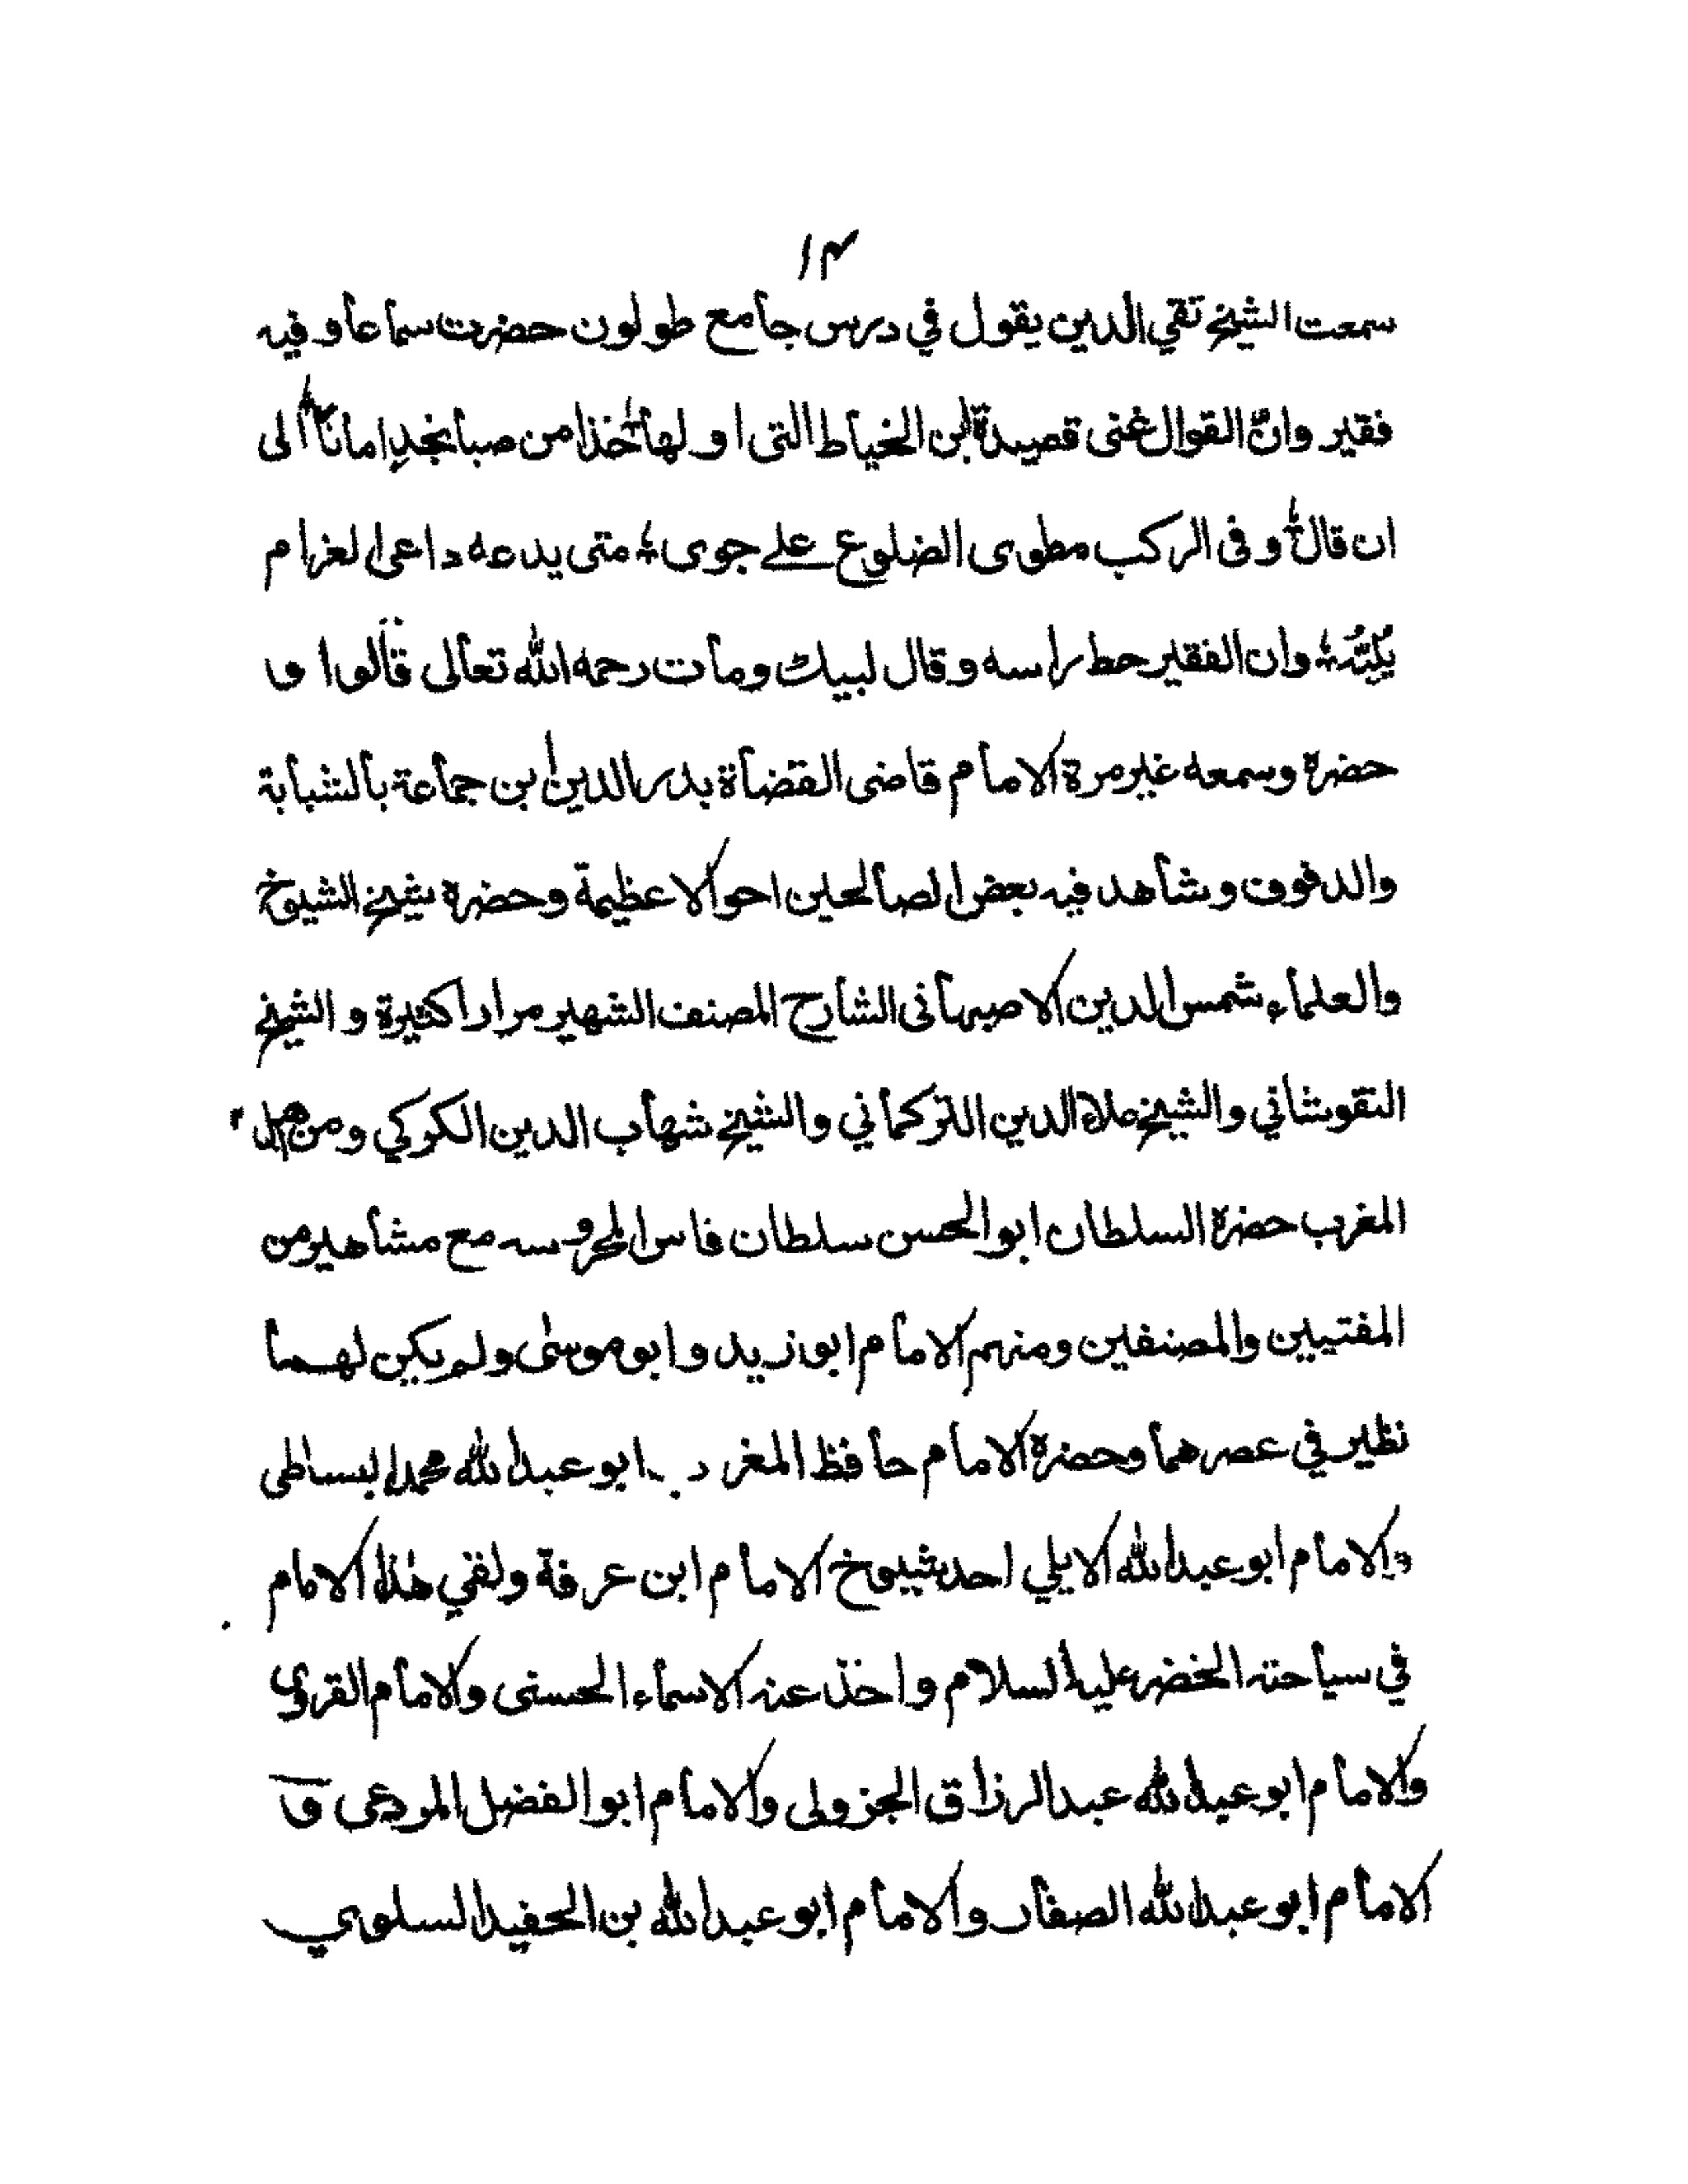 ١٣
سمعت الشيخ تقي الدين يقول في درس جامع طولون حضرت سماعا وفيه
فقير وانّ القوال غنى قصيدة ابن الخياط التى اولها خذا من صبا نجدٍ امانا الى
ان قال وفى الركب مطوى الضلوع على جوى متى يدعه داعى الغرام
يُلبّهِ وان الفقير حط راسه وقال لبيك ومات رحمه الله تعالى قالوا و
حضره وسمعه غير مرة الامام قاضى القضاة بدر الدين ابن جماعة بالشبابة
والدفوف وشاهد فيه بعض الصالحين احوالا عظيمة وحضره شيخ الشيوخ
والعلماء شمس الدين الاصبهانى الشارح المصنف الشهير مرارا كثيرة والشيخ
النقوشاني والشيخ علاء الدين التركماني والشيخ شهاب الدين الكركي ومن
المغرب حضره السلطان ابو الحسن سلطان فاس المحروسه مع مشاهير من
المفتيين والمصنفين ومنهم الامام ابو زيد وابو موسى ولم يكن لهما
نظير في عصرهما وحضره الامام حافظ المغرب ابو عبد الله محمد البساطى
والامام ابو عبد الله الايلي احد شيوخ الامام ابن عرفة ولقي هذا الامام
في سياحته الخضر عليه السلام واخذ عنه الاسماء الحسنى والامام القروي
والامام ابو عبد الله عبد الرزاق الجزولى والامام ابو الفضل المردعى و
الامام ابو عبد الله الصفار والامام ابو عبد الله بن الحفيد السلوي